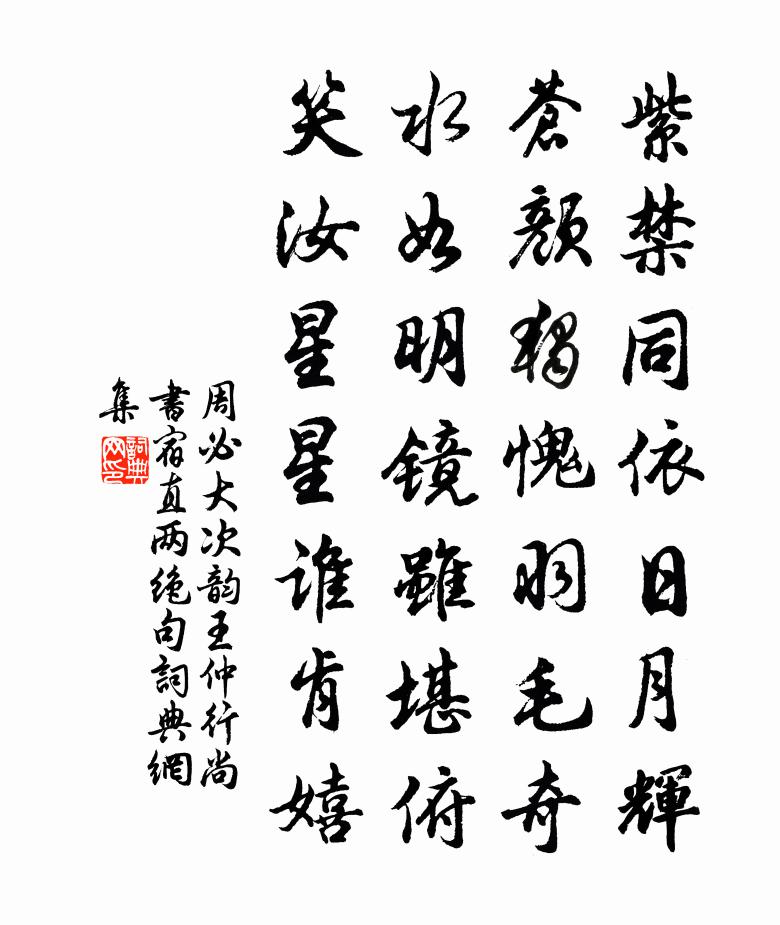 紫禁同依日月輝
蒼顏獨愧羽毛奇
水如明鏡雖堪俯
笑汝星星誰肯嬉
周必大次韵王仲行尚
書宿直两絶句詞典網
集
詞典
网印